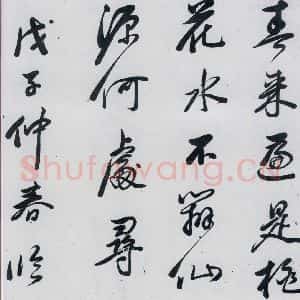 春来遍是桃
花水不辨仙
源何處尋
戊子仲春临
Shufawang.Cn